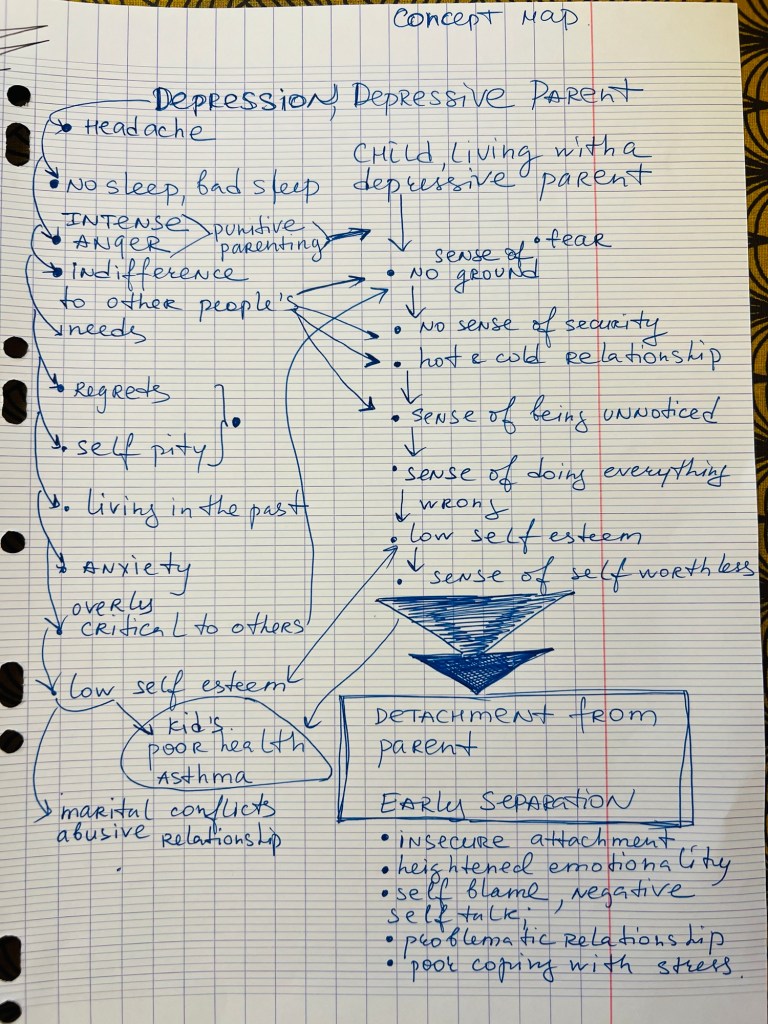 Concept Map
Depression, Depressive Parent
• Headache
• No sleep, bad sleep
INTENSE
• ANGER
punitive
parenting
• indifference
to other people's
needs
• Regrets
• self pity
• living in the past
• Anxiety
overly
critical to others
• low self esteem
kid's
poor health
Asthma
marital conflicts
abusive relationship
CHILD, living with a
depressive parent
• fear
sense of
• NO GROUND
• No sense of security
• hot & cold relationship
• sense of being UNNOTICED
• sense of doing everything
wrong
• low self esteem
• sense of self worthless
DETACHMENT from
parent
EARLY SEPARATION
• insecure attachment,
• heightened emotionality
• self blame, negative
self talk;
• problematic relationship
• poor coping with stress.